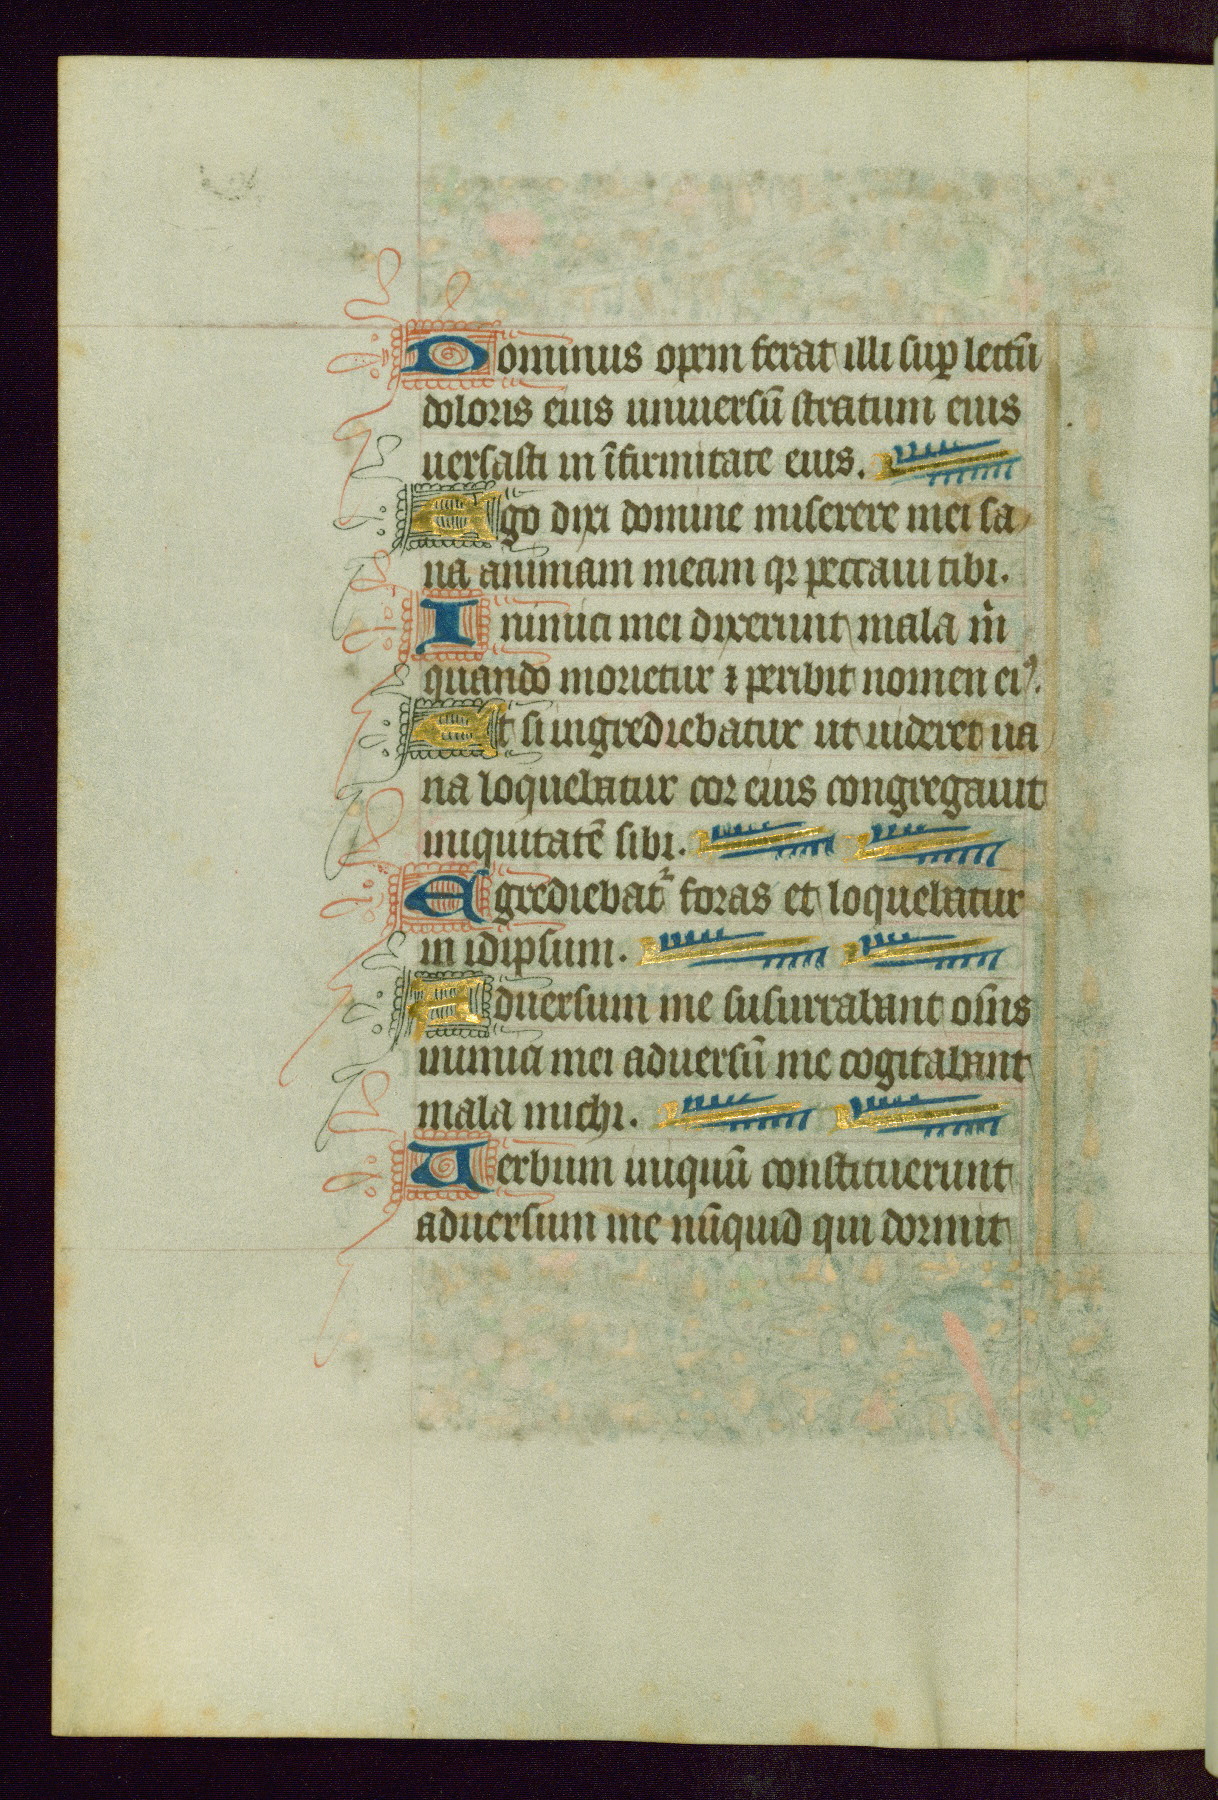 Dominus opem ferat illi sup̱ lectũ
doloris eius uniuersũ stratum eius
uersasti in ĩfirmitate eius.
Ego dixi domine miserere mei sa
na animam meam qꝛ peccaui tibi.
Inimici mei dixerunt mala m̃i
quando morietur ⁊ peribit nomen eiꝰ.
Et si ingrediebatur ut uideret ua
na loquebatur cor eius congregauit
iniquitatẽ sibi.
Egrediebat᷑ foras et loquebatur
in idipsum.
Aduersum me susurrabant om̃s
inimici mei aduersũ me cogitabant
mala michi.
Uerbum iniquũ constituerunt
aduersum me nũquid qui dormit